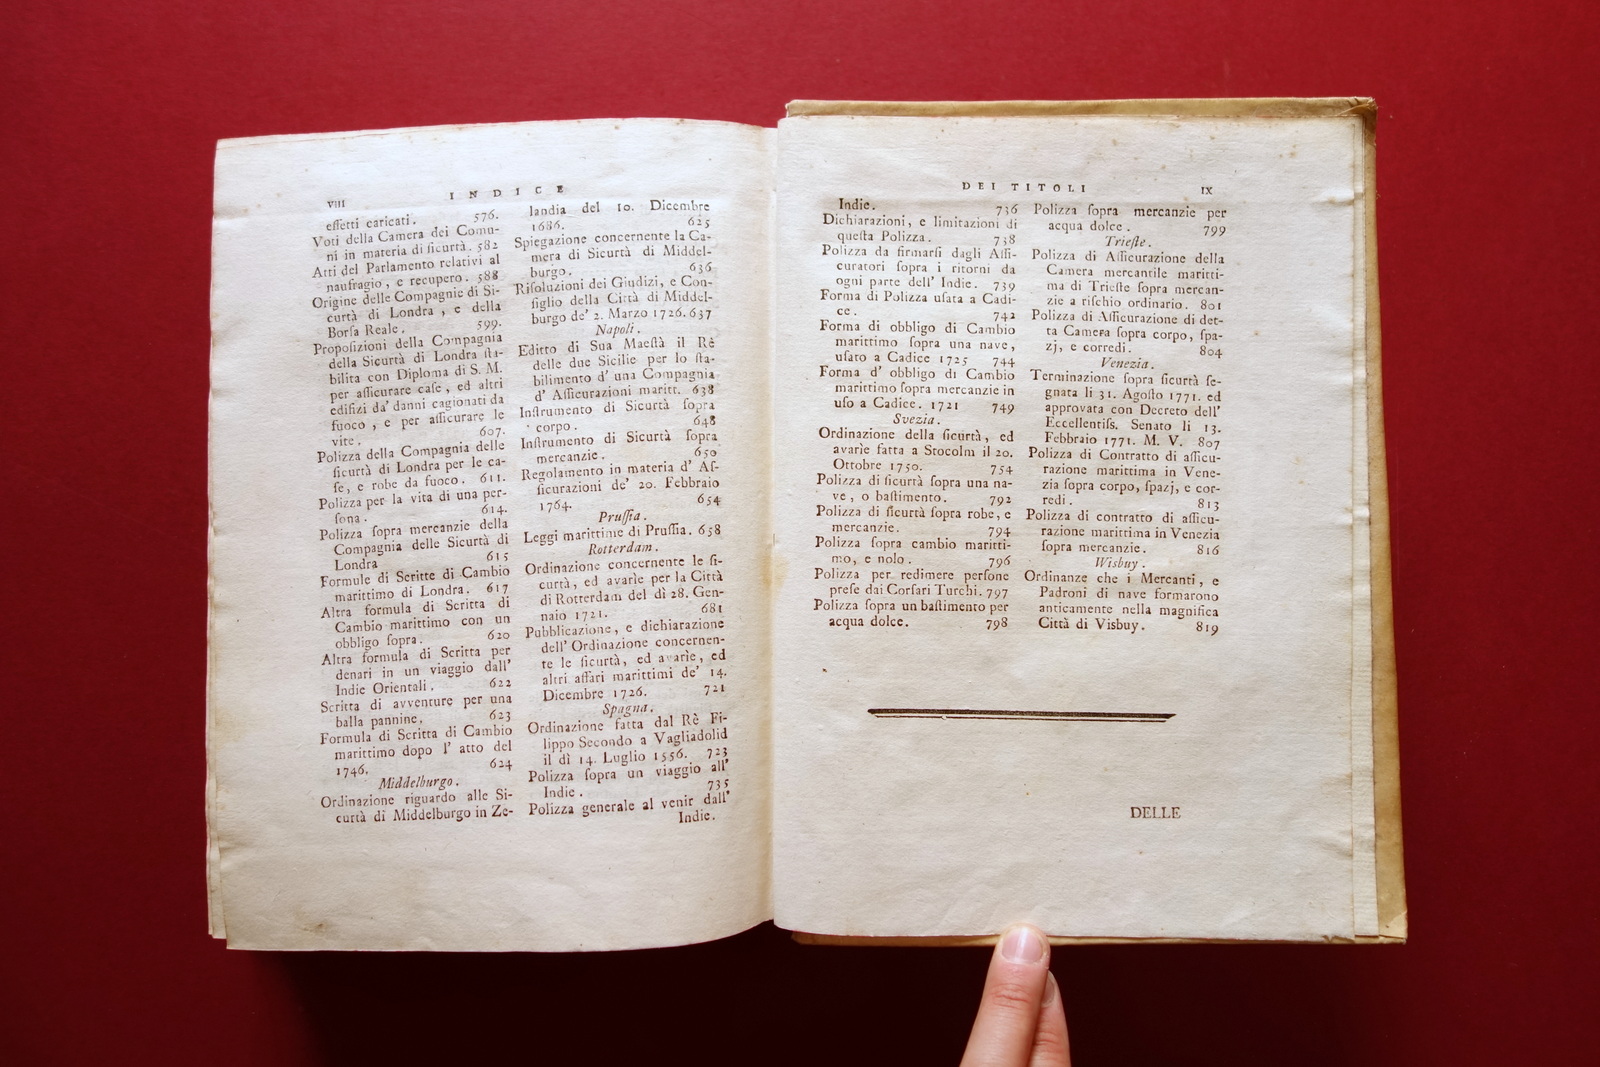 VIII
INDICE
effetti caricati. 576.
Voti della Camera dei Comu-
ni in materia di ſicurtà. 582
Atti del Parlamento relativi al
naufragio, e recupero. 588
Origine delle Compagnie di Si-
curtà di Londra, e della
Borſa Reale. 599.
Propoſizioni della Compagnia
della Sicurtà di Londra ſta-
bilita con Diploma di S. M.
per aſſicurare caſe, ed altri
edifizi da' danni cagionati da
fuoco, e per aſſicurare le
vite. 607.
Polizza della Compagnia delle
ſicurtà di Londra per le ca-
ſe, e robe da fuoco. 611.
Polizza per la vita di una per-
ſona. 614.
Polizza ſopra mercanzie della
Compagnia delle Sicurtà di
Londra 615
Formule di Scritte di Cambio
marittimo di Londra. 617
Altra formula di Scritta di
Cambio marittimo con un
obbligo ſopra. 620
Altra formula di Scritta per
denari in un viaggio dall'
Indie Orientali. 622
Scritta di avventure per una
balla pannine. 623
Formula di Scritta di Cambio
marittimo dopo l' atto del
1746. 624
Middelburgo.
Ordinazione riguardo alle Si-
curtà di Middelburgo in Ze-
landia del 10. Dicembre
1686. 625
Spiegazione concernente la Ca-
mera di Sicurtà di Middel-
burgo. 636
Riſoluzioni dei Giudizi, e Con-
ſiglio della Città di Middel-
burgo de' 2. Marzo 1726. 637
Napoli.
Editto di Sua Maeſtà il Rè
delle due Sicilie per lo ſta-
bilimento d' una Compagnia
d' Aſſicurazioni maritt. 638
Inſtrumento di Sicurtà ſopra
corpo. 648
Inſtrumento di Sicurtà ſopra
mercanzie. 650
Regolamento in materia d' Aſ-
ſicurazioni de' 20. Febbraio
1764. 654
Pruſſia.
Leggi marittime di Pruſſia. 658
Rotterdam.
Ordinazione concernente le ſi-
curtà, ed avarìe per la Città
di Rotterdam del dì 28. Gen-
naio 1721. 681
Pubblicazione, e dichiarazione
dell' Ordinazione concernen-
te le ſicurtà, ed avarìe, ed
altri affari marittimi de' 14.
Dicembre 1726. 721
Spagna.
Ordinazione fatta dal Rè Fi-
lippo Secondo a Vagliadolid
il dì 14. Luglio 1556. 723
Polizza ſopra un viaggio all'
Indie. 735
Polizza generale al venir dall'
Indie.
DEI TITOLI
IX
Indie. 736
Dichiarazioni, e limitazioni di
queſta Polizza. 738
Polizza da firmarſi dagli Aſſi-
curatori ſopra i ritorni da
ogni parte dell' Indie. 739
Forma di Polizza uſata a Cadi-
ce. 742
Forma di obbligo di Cambio
marittimo ſopra una nave,
uſato a Cadice 1725 744
Forma d' obbligo di Cambio
marittimo ſopra mercanzie in
uſo a Cadice. 1721 749
Svezia.
Ordinazione della ſicurtà, ed
avarìe fatta a Stocolm il 20.
Ottobre 1750. 754
Polizza di ſicurtà ſopra una na-
ve, o baſtimento. 792
Polizza di ſicurtà ſopra robe, e
mercanzie. 794
Polizza ſopra cambio maritti-
mo, e nolo. 796
Polizza per redimere perſone
preſe dai Corſari Turchi. 797
Polizza ſopra un baſtimento per
acqua dolce. 798
Polizza ſopra mercanzie per
acqua dolce. 799
Trieſte.
Polizza di Aſſicurazione della
Camera mercantile maritti-
ma di Trieſte ſopra mercan-
zie a riſchio ordinario. 801
Polizza di Aſſicurazione di det-
ta Camera ſopra corpo, ſpa-
zj, e corredi. 804
Venezia.
Terminazione ſopra ſicurtà ſe-
gnata li 31. Agoſto 1771. ed
approvata con Decreto dell'
Eccellentiſs. Senato li 13.
Febbraio 1771. M. V. 807
Polizza di Contratto di aſſicu-
razione marittima in Vene-
zia ſopra corpo, ſpazj, e cor-
redi. 813
Polizza di contratto di aſſicu-
razione marittima in Venezia
ſopra mercanzie. 816
Wisbuy.
Ordinanze che i Mercanti, e
Padroni di nave formarono
anticamente nella magnifica
Città di Visbuy. 819
DELLE